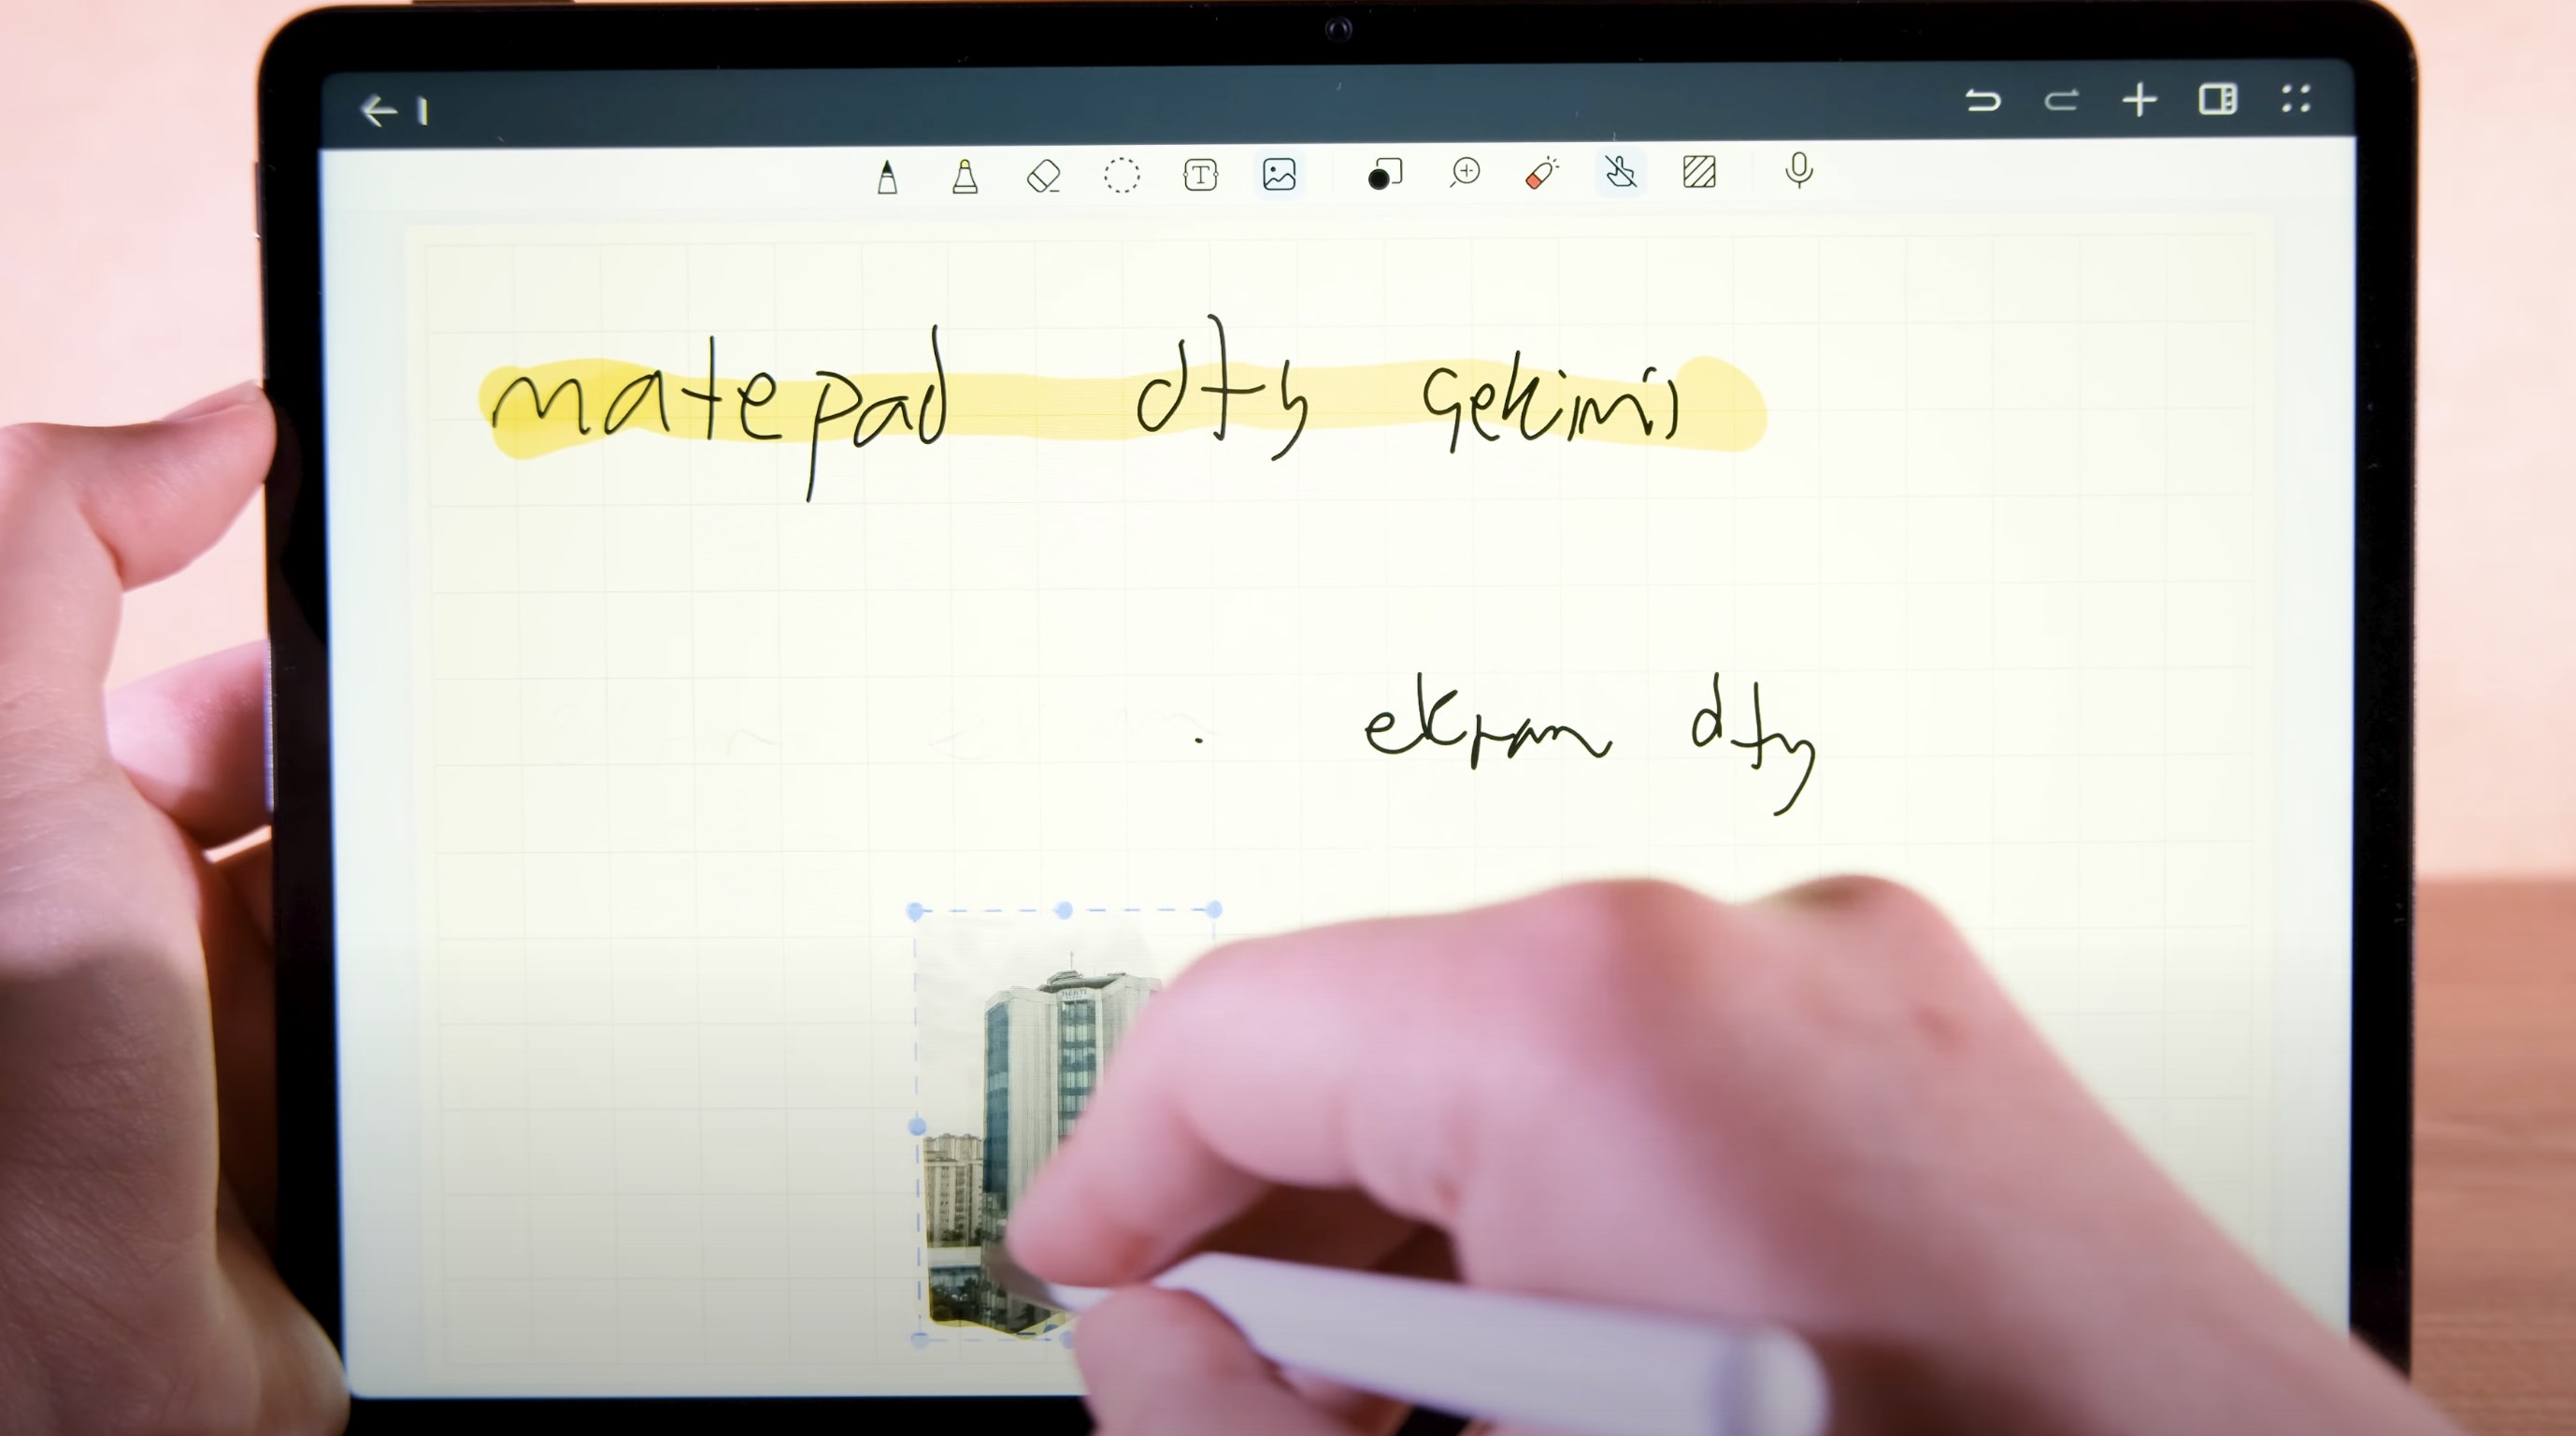 matepad dty çekimi
ekran dty